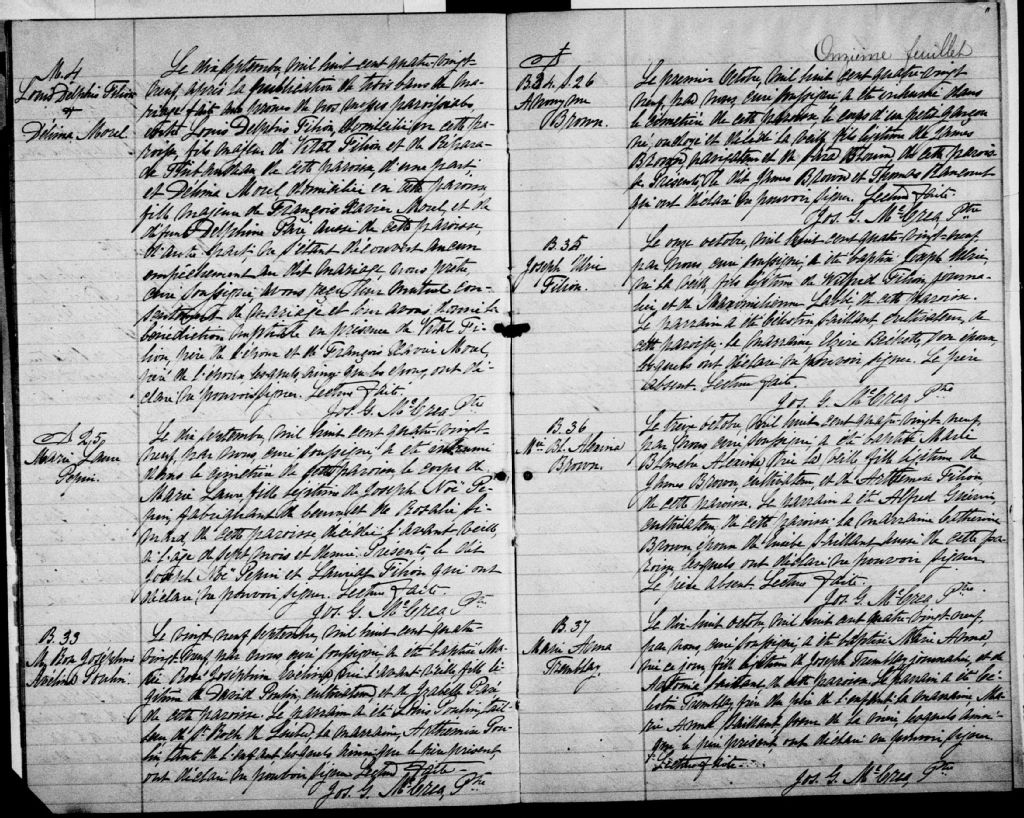 M. 4
Louis Delphis Filion
+
Délima Morel
Le dix septembre, mil huit cent quatre-vingt-
neuf après la publication de trois bans de ma-
riage fait aux prônes de nos messes paroissiales
entre Louis Delphis Filion, domicilié en cette pa-
roisse, fils majeur de Vital Filion et de
de cette paroisse, d'une part;
et Délima Morel domiciliée en cette paroisse
fille majeure de François Xavier Morel, et de
défunte Delphine Paré, aussi de cette paroisse,
d'autre part; ne s'étant découvert aucun
empêchement au dit mariage nous prêtre,
curé soussigné avons reçu leur mutuel con-
sentement de mariage et leur avons donné la
bénédiction nuptiale en présence de Vital Fi-
lion, père de l'époux et de François Xavier Morel,
père de l'épouse lesquels ainsi que les époux, ont dé-
claré ne pouvoir signer. Lecture faite.
Jos. G. McCrea Ptre
S 25
Marie Laure
Pepin.
Le dix septembre, mil huit cent quatre-vingt-
neuf, par nous, curé soussigné, a été inhumé
dans le cimetière de cette paroisse le corps de
Marie Laure, fille légitime de Joseph Noé Pe-
pin, fabriquant de beurre et de Rosalie Si-
mard, de cette paroisse décédée l'avant veille,
à l'âge de sept mois et demi. Présents le dit
Joseph Noé Pepin et Filion qui ont
déclaré ne pouvoir signer. Lecture faite.
Jos. G. McCrea Ptre
B. 33
M. Rose Joséphine
Poulin.
Le vingt neuf septembre, mil huit cent quatre-
vingt-neuf, par nous curé soussigné a été baptisé Ma-
rie Rose Joséphine née l'avant veille, fille lé-
gitime de David Poulin, cultivateur et de Isabelle Paré
de cette paroisse. Le parrain a été Louis Poulin, tail-
leur de St. Roch de Québec, la marraine, Arthémise Pou-
lin tante de l'enfant lesquels ainsi que le père présent,
ont déclaré ne pouvoir signer. Lecture faite.
Jos. G. McCrea, Ptre
Onzième feuillet
B. 34. S. 26
Anonyme
Brown.
Le premier octobre, mil huit cent quatre-vingt
neuf, par nous, curé soussigné a été inhumé dans
le cimetière de cette paroisse le corps d'un petit garçon
né, ondoyé et décédé la veille, fils légitime de James
Brown, navigateur et de Sara Blouin, de cette parois-
se. Présents le dit James Brown et Thomas
qui ont déclaré ne pouvoir signer. Lecture faite.
Jos. G. McCrea Ptre
B. 35
Joseph Ulric
Filion.
Le onze octobre, mil huit cent quatre-vingt-neuf,
par nous, curé soussigné, a été baptisé Joseph Ulric,
né la veille, fils légitime de Wilfred Filion, journa-
lier, et de Maximilienne Labbé de cette paroisse.
Le parrain a été Célestin Vaillant, cultivateur, de
cette paroisse. La marraine son épouse,
lesquels ont déclaré ne pouvoir signer. Le père
absent. Lecture faite.
Jos. G. McCrea Ptre
B. 36
Mie Bl. Alexina
Brown.
Le treize octobre, mil huit cent quatre-vingt-neuf,
par nous curé soussigné a été baptisé Marie
Blanche Alexina née la veille fille légitime de
James Brown, cultivateur, et de Arthémise Filion,
de cette paroisse. Le parrain a été Alfred Guérin,
cultivateur, de cette paroisse. La marraine Catherine
Brown épouse de Vaillant aussi de cette pa-
roisse lesquels ont déclaré ne pouvoir signer
Le père absent. Lecture faite.
Jos. G. McCrea, Ptre
B. 37
Marie Anna
Tremblay.
Le dix huit octobre, mil huit cent quatre-vingt-neuf,
par nous, curé soussigné, a été baptisée Marie Anna
née ce jour, fille légitime de Joseph Tremblay, journalier, et de
Vaillant, de cette paroisse. Le parrain a été
Tremblay, frère du père de l'enfant, la marraine, Ma-
rie Anna Vaillant lesquels ainsi
que le père présent ont déclaré ne pouvoir signer
Lecture faite.
Jos. G. McCrea, Ptre